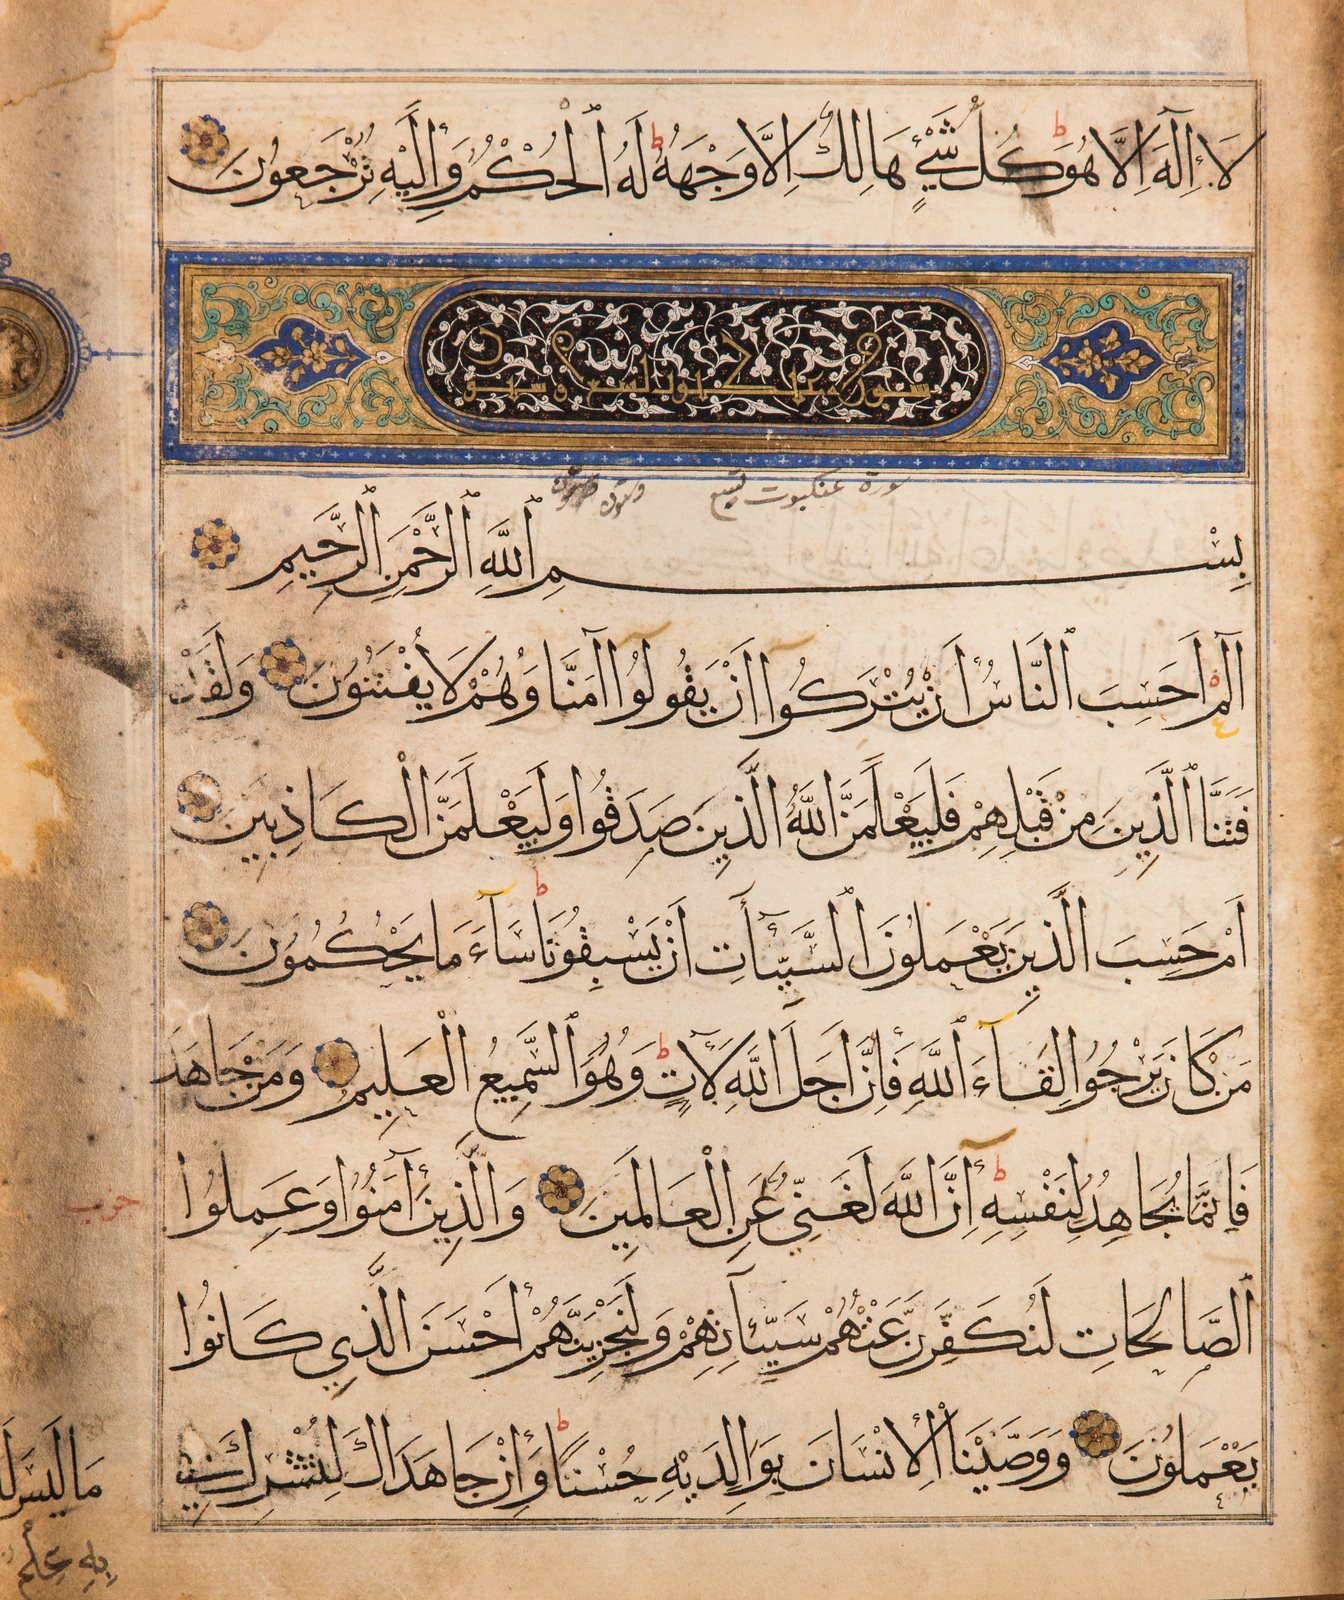 لَا إِلَهَ إِلَّا هُوَ كُلُّ شَيْءٍ هَالِكٌ إِلَّا وَجْهَهُ لَهُ ٱلْحُكْمُ وَإِلَيْهِ تُرْجَعُونَ
سورة عنكبوت تسع وستون
بِسْمِ ٱللَّهِ ٱلرَّحْمَنِ ٱلرَّحِيمِ
الٓمٓ اَحَسِبَ ٱلنَّاسُ اَنْ يُتْرَكُوٓا اَنْ يَقُولُوٓا اٰمَنَّا وَهُمْ لَا يُفْتَنُونَ وَلَقَدْ
فَتَنَّا ٱلَّذِينَ مِنْ قَبْلِهِمْ فَلَيَعْلَمَنَّ ٱللَّهُ الَّذِينَ صَدَقُوا وَلَيَعْلَمَنَّ الْكَاذِبِينَ
اَمْ حَسِبَ الَّذِينَ يَعْمَلُونَ ٱلسَّيِّـَٔاتِ اَنْ يَسْبِقُونَا سَآءَ مَا يَحْكُمُونَ
مَنْ كَانَ يَرْجُوا لِقَآءَ ٱللَّهِ فَاِنَّ اَجَلَ ٱللَّهِ لَاٰتٍ وَهُوَ ٱلسَّمِيعُ الْعَلِيمُ وَمَنْ جَاهَدَ
فَاِنَّمَا يُجَاهِدُ لِنَفْسِهِ اِنَّ ٱللَّهَ لَغَنِيٌّ عَنِ الْعَالَمِينَ وَالَّذِينَ اٰمَنُوا وَعَمِلُوا
ٱلصَّالِحَاتِ لَنُكَفِّرَنَّ عَنْهُمْ سَيِّـَٔاتِهِمْ وَلَنَجْزِيَنَّهُمْ اَحْسَنَ الَّذِي كَانُوا
يَعْمَلُونَ وَوَصَّيْنَا ٱلْاِنْسَانَ بِوَالِدَيْهِ حُسْنًا وَاِنْ جَاهَدَاكَ لِتُشْرِكَ بِي
حزب
مَا لَيْسَ لَكَ
بِهِ عِلْمٌ